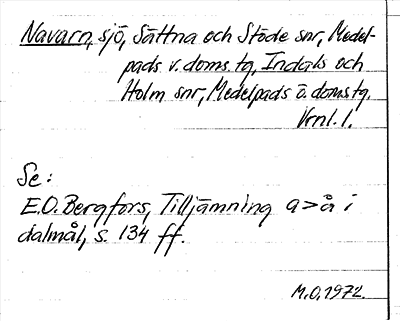 Navarn, sjö, Sättna och Stöde snr, Medel-
pads v. doms.tg, Indals och
Holm snr, Medelpads ö. doms.tg.
Vrnl. l.
Se:
E.O. Bergfors, Tilljämning a>å i
dalmål, s. 134 ff.
M.O. 1972.